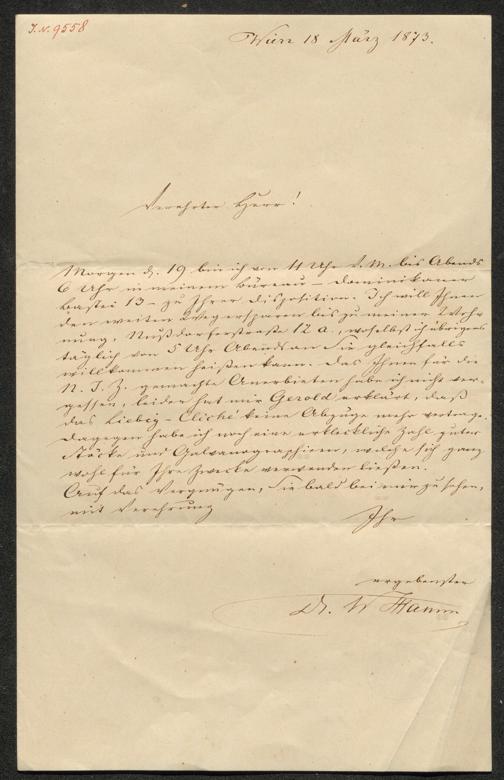 J. N. 9558
Wien 18 März 1873.
Verehrter Herr!
Morgen d. 19 bin ich von 11 Uhr V. M. bis Abends
6 Uhr in meinem Bureau – Dominikaner
bastei 13 – zu Ihrer Disposition. Ich will Ihnen
den weiten Weg ersparen bis zu meiner Wohn
nung, Nußdorferstrasse 12 a., woselbst ich übrigens
täglich von 5 Uhr Abends an Sie gleichfalls
willkommen heißen kann. Das Ihnen für die
N. I. Z. gemachte Anerbieten habe ich nicht ver-
gessen, leider hat mir Gerold erklärt, daß
das Liebig-Cliché keine Abzüge mehr vertrage.
Dagegen habe ich noch eine erkleckliche Zahl guter
Stöcke und Galvanographien, welche sich ganz
wohl für Ihre Zwecke verwenden ließen.
Auf das Vergnügen, Sie bald bei mir zu sehen,
mit Verehrung
Ihr
ergebenster
Dr. W Hamm